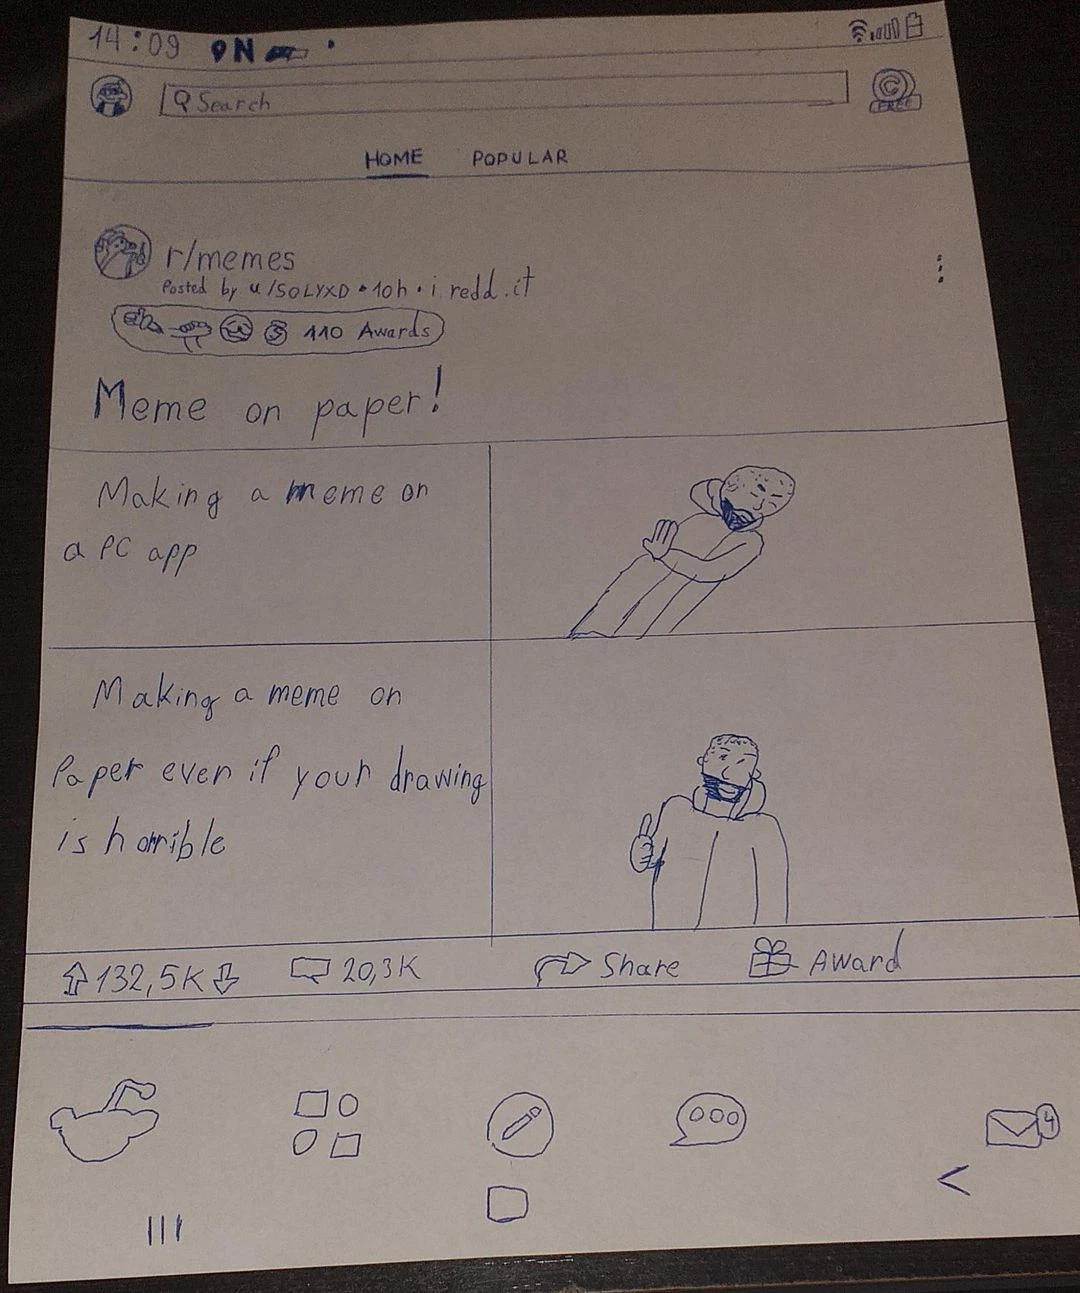 14:09 N
Search
FREE
HOME POPULAR
r/memes
Posted by u/SOLYXD • 10h • i.redd.it
110 Awards
Meme on paper!
Making a meme on
a PC app
Making a meme on
Paper even if your drawing
is horrible
132,5K 20,3K Share Award
4